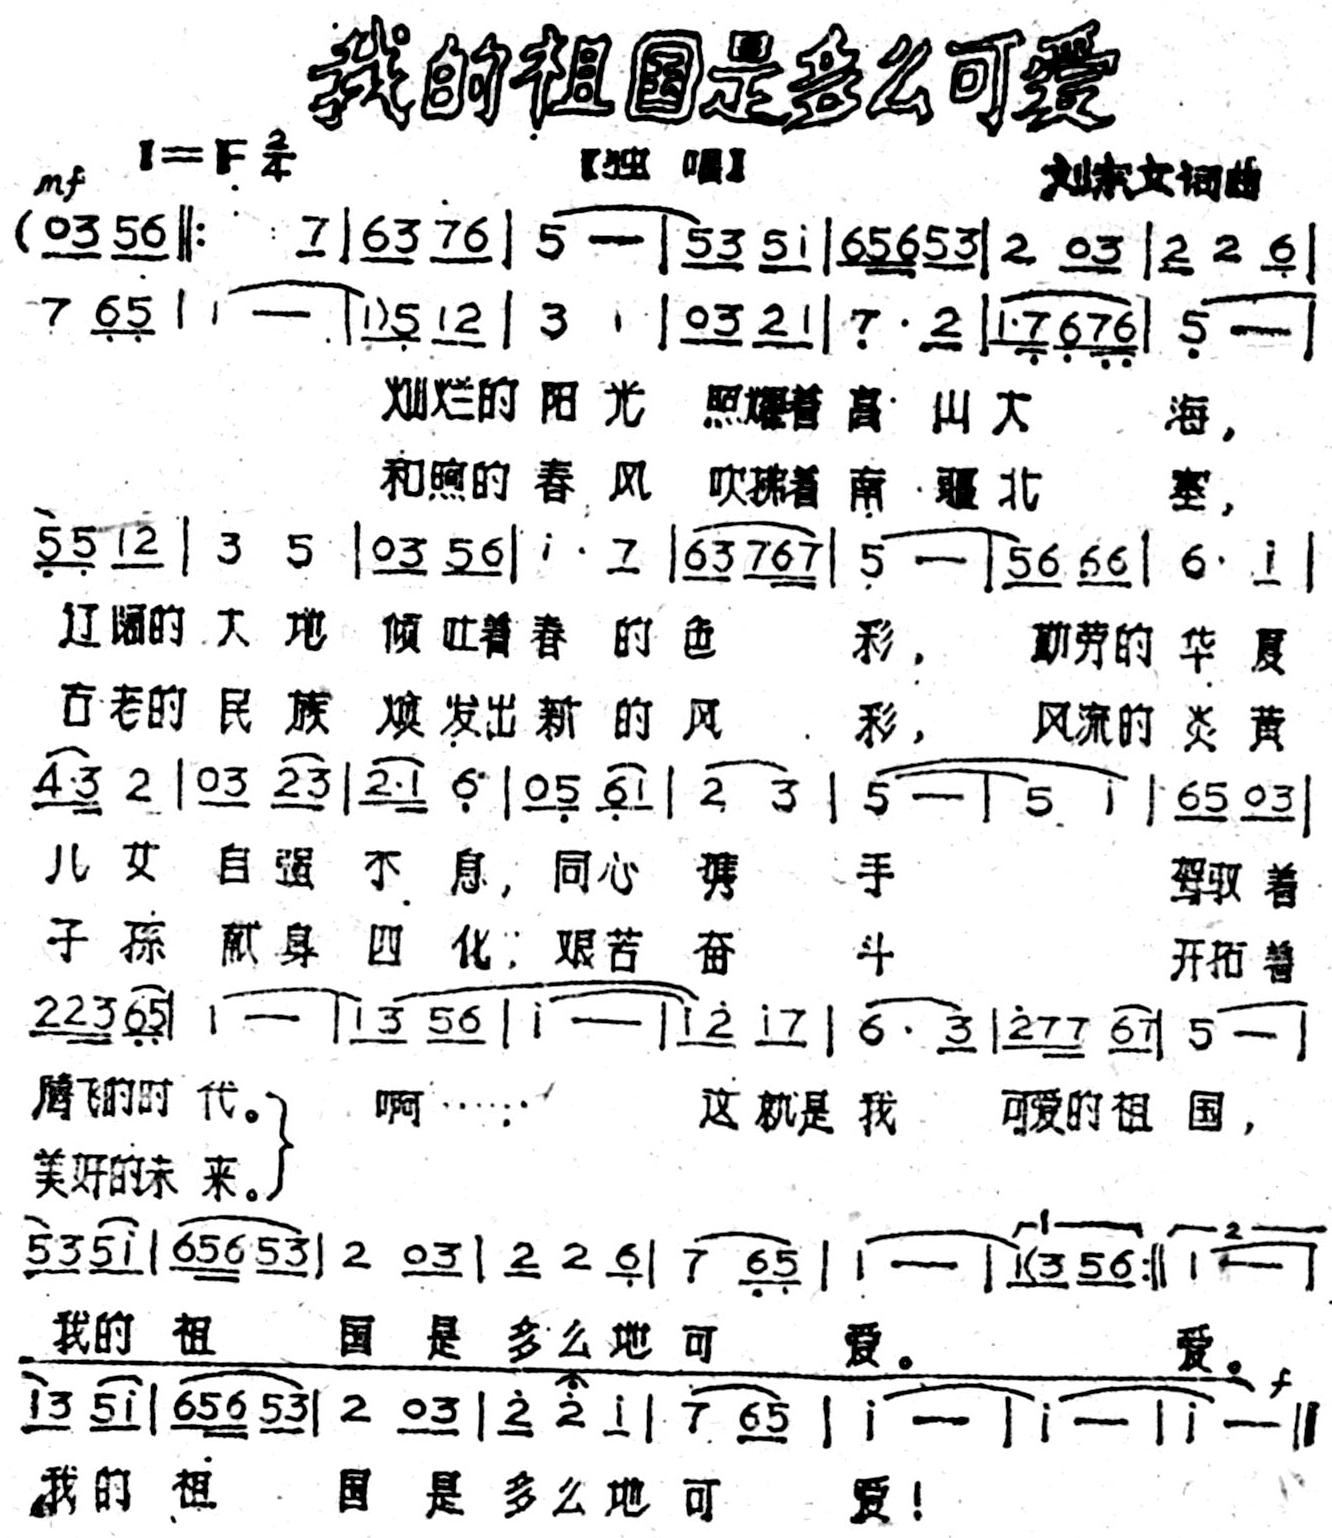 我的祖国是多么可爱
1=F 2/4 【独唱】 刘宗文词曲
mf
(03 56‖: 7|63 76|5 —|53 5i|65653|2 03|2 2 6|
7 65|1 —|1)5 12|3 1|03 21|7·2|1·7 676|5 —|
灿烂的阳光 照耀着高山大海，
和煦的春风 吹拂着南疆北塞，
55 12|3 5|03 56|i·7|63 767|5 —|56 66|6·i|
辽阔的大地 倾吐着春的色彩， 勤劳的华夏
古老的民族 焕发出新的风彩， 风流的炎黄
4·3 2|03 23|2·1 6|05 61|2 3|5 —|5 i|65 03|
儿女 自强不息，同心携手 驾驭着
子孙 献身四化，艰苦奋斗 开拓着
223 65|1 —|13 56|i —|i2 i7|6·3|277 67|5 —|
腾飞的时代。 啊…… 这就是我 可爱的祖国，
美好的未来。
53 5i|656 53|2 03|2 2 6|7 65|1 —|1(3 56:‖1 —|
1 2
我的祖国是多么地可爱。 爱。
f
13 5i|656 53|2 03|2 2 i|7 65|i —|i —|i —‖
我的祖国是多么地可爱！